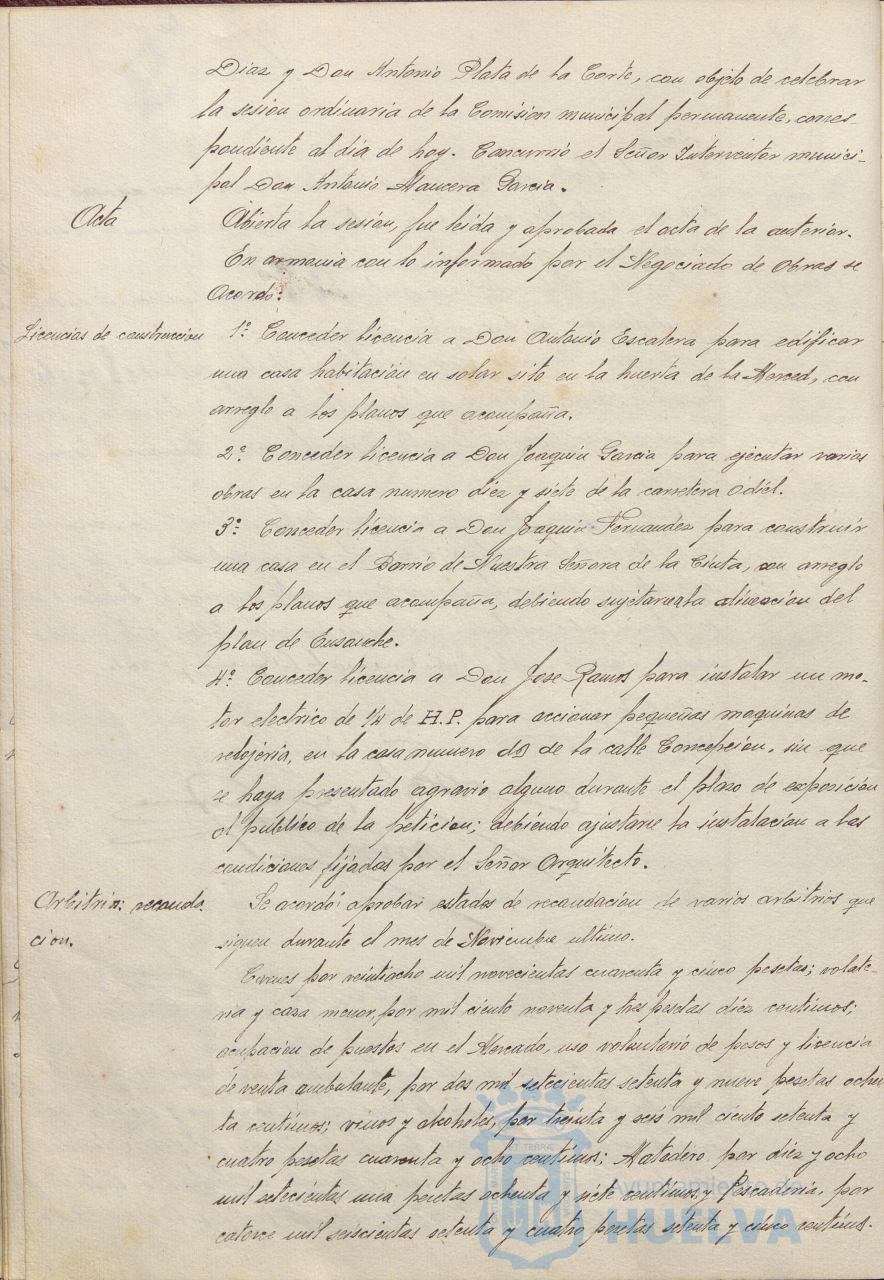 Diaz y Don Antonio Plata de la Corte, con objeto de celebrar
la sesion ordinaria de la Comision municipal permanente, corres-
pondiente al dia de hoy. Concurrió el Señor Interventor munici-
pal Don Antonio Mancera Garcia.
Acta
Abierta la sesion, fue leida y aprobada el acta de la anterior.
En armonia con lo informado por el Negociado de Obras se
Acordó:
Licencias de construccion
1º Conceder licencia a Don Antonio Escalera para edificar
una casa habitación en solar sito en la huerta de la Merced, con
arreglo a los planos que acompaña.
2º Conceder licencia a Don Joaquin Garcia para ejecutar varias
obras en la casa numero diez y siete de la carretera Odiel.
3º Conceder licencia a Don Joaquin Fernandez para construir
una casa en el Barrio de Nuestra Señora de la Cinta, con arreglo
a los planos que acompaña, debiendo sujetarse a la alineacion del
plan de Ensanche.
4º Conceder licencia a Don Jose Ramos para instalar un mo-
tor electrico de 1/4 de H.P. para accionar pequeñas maquinas de
relojeria, en la casa numero dos de la calle Concepcion, sin que
se haya presentado agravio alguno durante el plazo de exposición
al público de la peticion; debiendo ajustarse la instalacion a las
condiciones fijadas por el Señor Arquitecto.
Arbitrios: recauda-
cion.
Se acordó aprobar estados de recaudacion de varios arbitrios que
siguen durante el mes de Noviembre ultimo.
Carnes por veintiocho mil novecientas cuarenta y cinco pesetas; volate-
ria y caza menor, por mil ciento noventa y tres pesetas diez centimos;
ocupacion de puestos en el Mercado, uso voluntario de pesos y licencia
de venta ambulante, por dos mil setecientas setenta y nueve pesetas ochen
ta centimos; vinos y alcoholes, por treinta y seis mil ciento setenta y
cuatro pesetas cuarenta y ocho centimos; Matadero por diez y ocho
mil setecientas una pesetas ochenta y siete centimos y Pescaderia, por
catorce mil seiscientas setenta y cuatro pesetas setenta y cinco centimos.
Ayuntamiento de
HUELVA